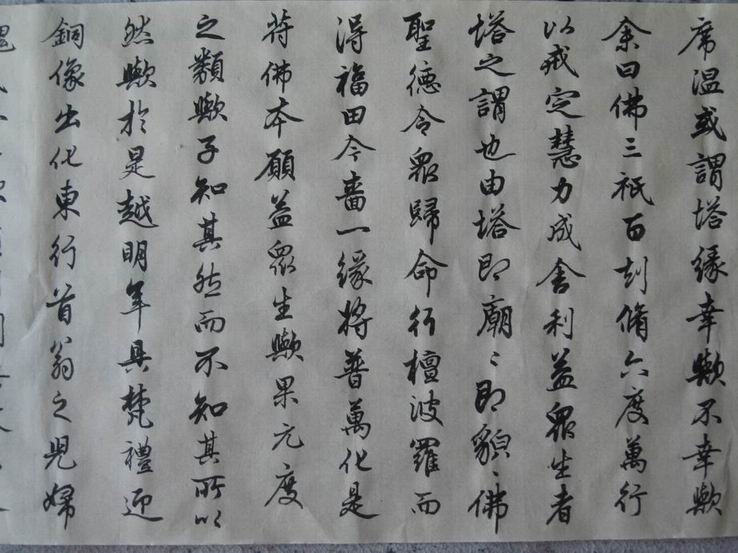 席温或謂塔緣幸歟不幸歟
余曰佛三祇百刧脩六度萬行
以戒定慧力成舍利益眾生者
塔之謂也由塔即廟〻即貌〻佛
聖德令眾歸命行檀波羅而
得福田今嗇一緣將普萬化是
符佛本願益眾生歟果元度
之類歟子知其然而不知其所以
然歟於是越明年具梵禮迎
銅像出化東行首翁之兒婦